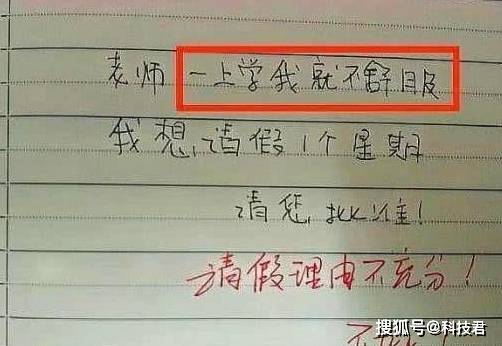 老师 一上学我就不舒服
我想请假1个星期
请您批准!
请假理由不充分!
搜狐号@科技君